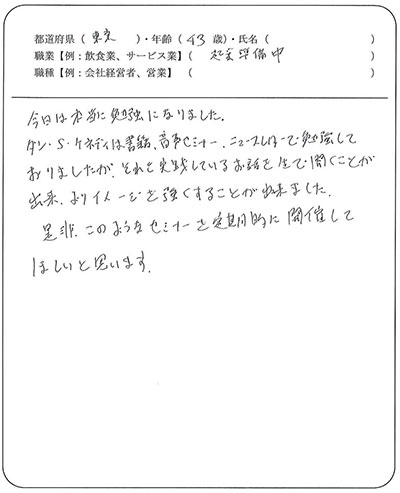 都道府県（ 東京 ）・年齢（ 43 歳）・氏名（ ）
職業【例：飲食業、サービス業】（ 起業準備中 ）
職種【例：会社経営者、営業】（ ）
今日は本当に勉強になりました。
ダン・S・ケネディは書籍、音声セミナー、ニュースレターで勉強して
おりましたが、それを実践しているお話を生で聞くことが
出来、よりイメージを強くすることが出来ました。
是非、このようなセミナーを定期的に開催して
ほしいと思います。